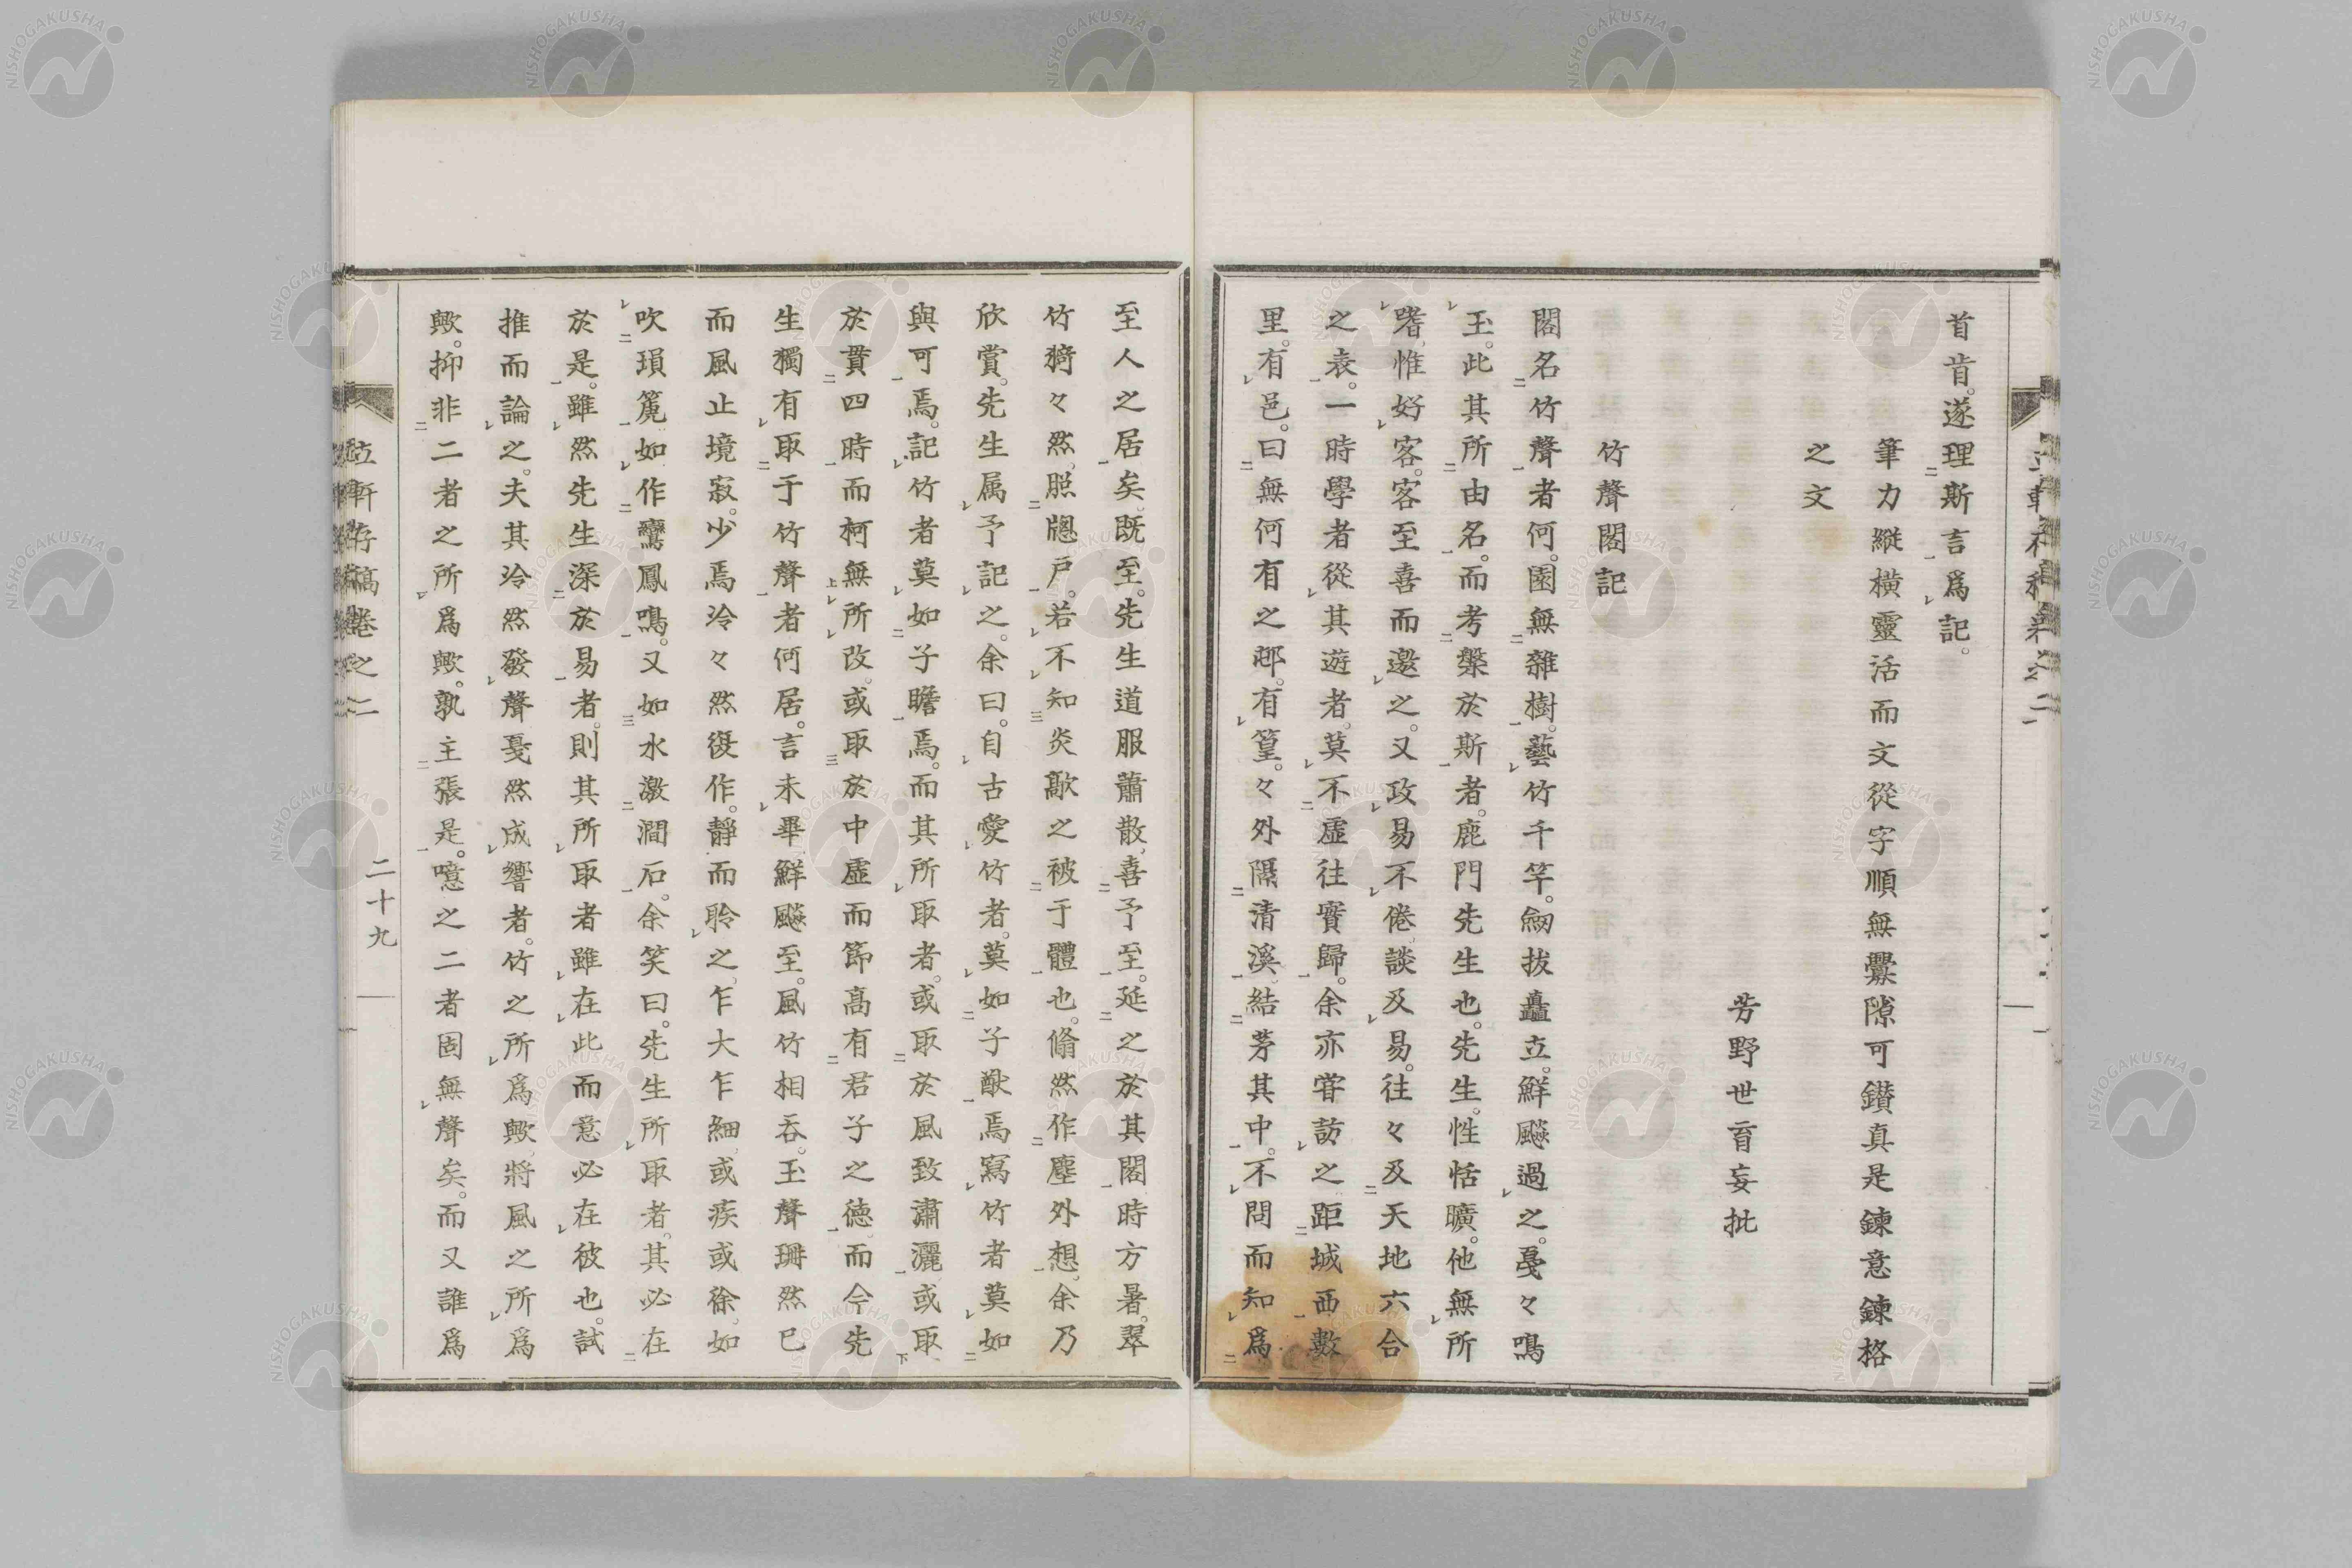 首肯。遂理斯言爲記。
筆力縱橫靈活而文從字順無釁隙可鑚真是鍊意鍊格
之文
芳野世育妄批
竹聲閣記
閣名竹聲者何。園無雜樹。藝竹千竿。劒拔矗立。鮮飈過之。戞々鳴
玉。此其所由名。而考槃於斯者。鹿門先生也。先生。性恬曠。他無所
嗜。惟好客。客至喜而邀之。又攻易不倦。談及易。往々及天地六合
之表。一時學者從其遊者。莫不虛往實歸。余亦甞訪之。距城西數
里。有邑。曰無何有之鄕。有篁。々外隔清溪。結茅其中。不問而知爲
至人之居矣。既至。先生道服蕭散。喜予至。延之於其閣。時方暑。翠
竹猗々然。照牕戶。若不知炎歊之被于體也。翛然作塵外想。余乃
欣賞。先生属予記之。余曰。自古愛竹者。莫如子猷焉。寫竹者莫如
與可焉。記竹者莫如子瞻焉。而其所取者。或取於風致瀟灑。或取
於貫四時而柯無所改。或取於中虛而節高有君子之德。而今先
生獨有取于竹聲者何居。言未畢鮮飈至。風竹相吞。玉聲珊然已
而風止境寂。少焉冷々然復作。靜而聆之。乍大乍細。或疾或徐。如
吹瑣篪如作鸞鳳鳴。又如水激澗石。余笑曰。先生所取者。其必在
於是。雖然先生深於易者。則其所取者雖在此而意必在彼也。試
推而論之。夫其泠然發聲戞然成響者。竹之所爲歟。將風之所爲
歟。抑非二者之所爲歟。孰主張是。噫之二者固無聲矣。而又誰爲
立軒存稿卷之二
二十九
NISHOGAKUSHA